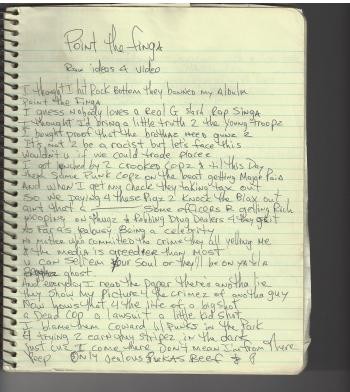 Point the Finga
Raw ideas 4 video
I thought I hit Rock Bottom they banned my album
Point the Finga
I guess nobody loves a Real G Rap Singa
I thought I'd bring a little truth 2 the Young Troopz
I bought proof that the brothaz need gunz 2
It's not 2 be a racist but let's face this
Wouldn't u if we could trade places
I got punched by 2 crooked Copz & til this Day
them same Punk Copz on the beat getting Major Paid
And when I get my check they taking tax out
So we paying 4 those Pigz 2 Knock the Blax out
ain't that a officers R getting Rich
Wooping on thugz & Robbing Drug Dealers 4 they
so far as Being a celebrity
No matter who committed the crime they all yelling me
& the media is greedier than Most
U can sell em your Soul or they'll be on ya
ghost
And everyday I read the paper theres anotha lie
they show My Picture 4 the crimez of anotha guy
New yowns that 4 the life of a big shot
a Dead Cop a lawsuit a little kid shot
I blame them coward Punks in the Park
& trying 2 earn my Stripez in the dark
Just cuz I come there Don't mean I'm from there
Peep Only Jealous Beef &